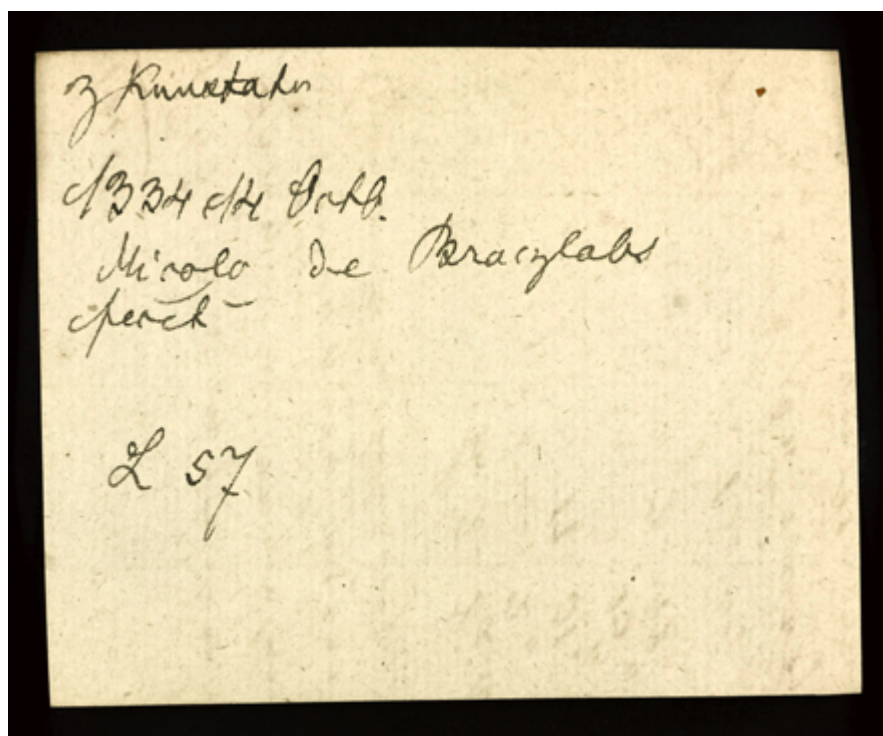 z Kunstatu
1334 14 Octb.
Micolo de Braczlabs
L 57